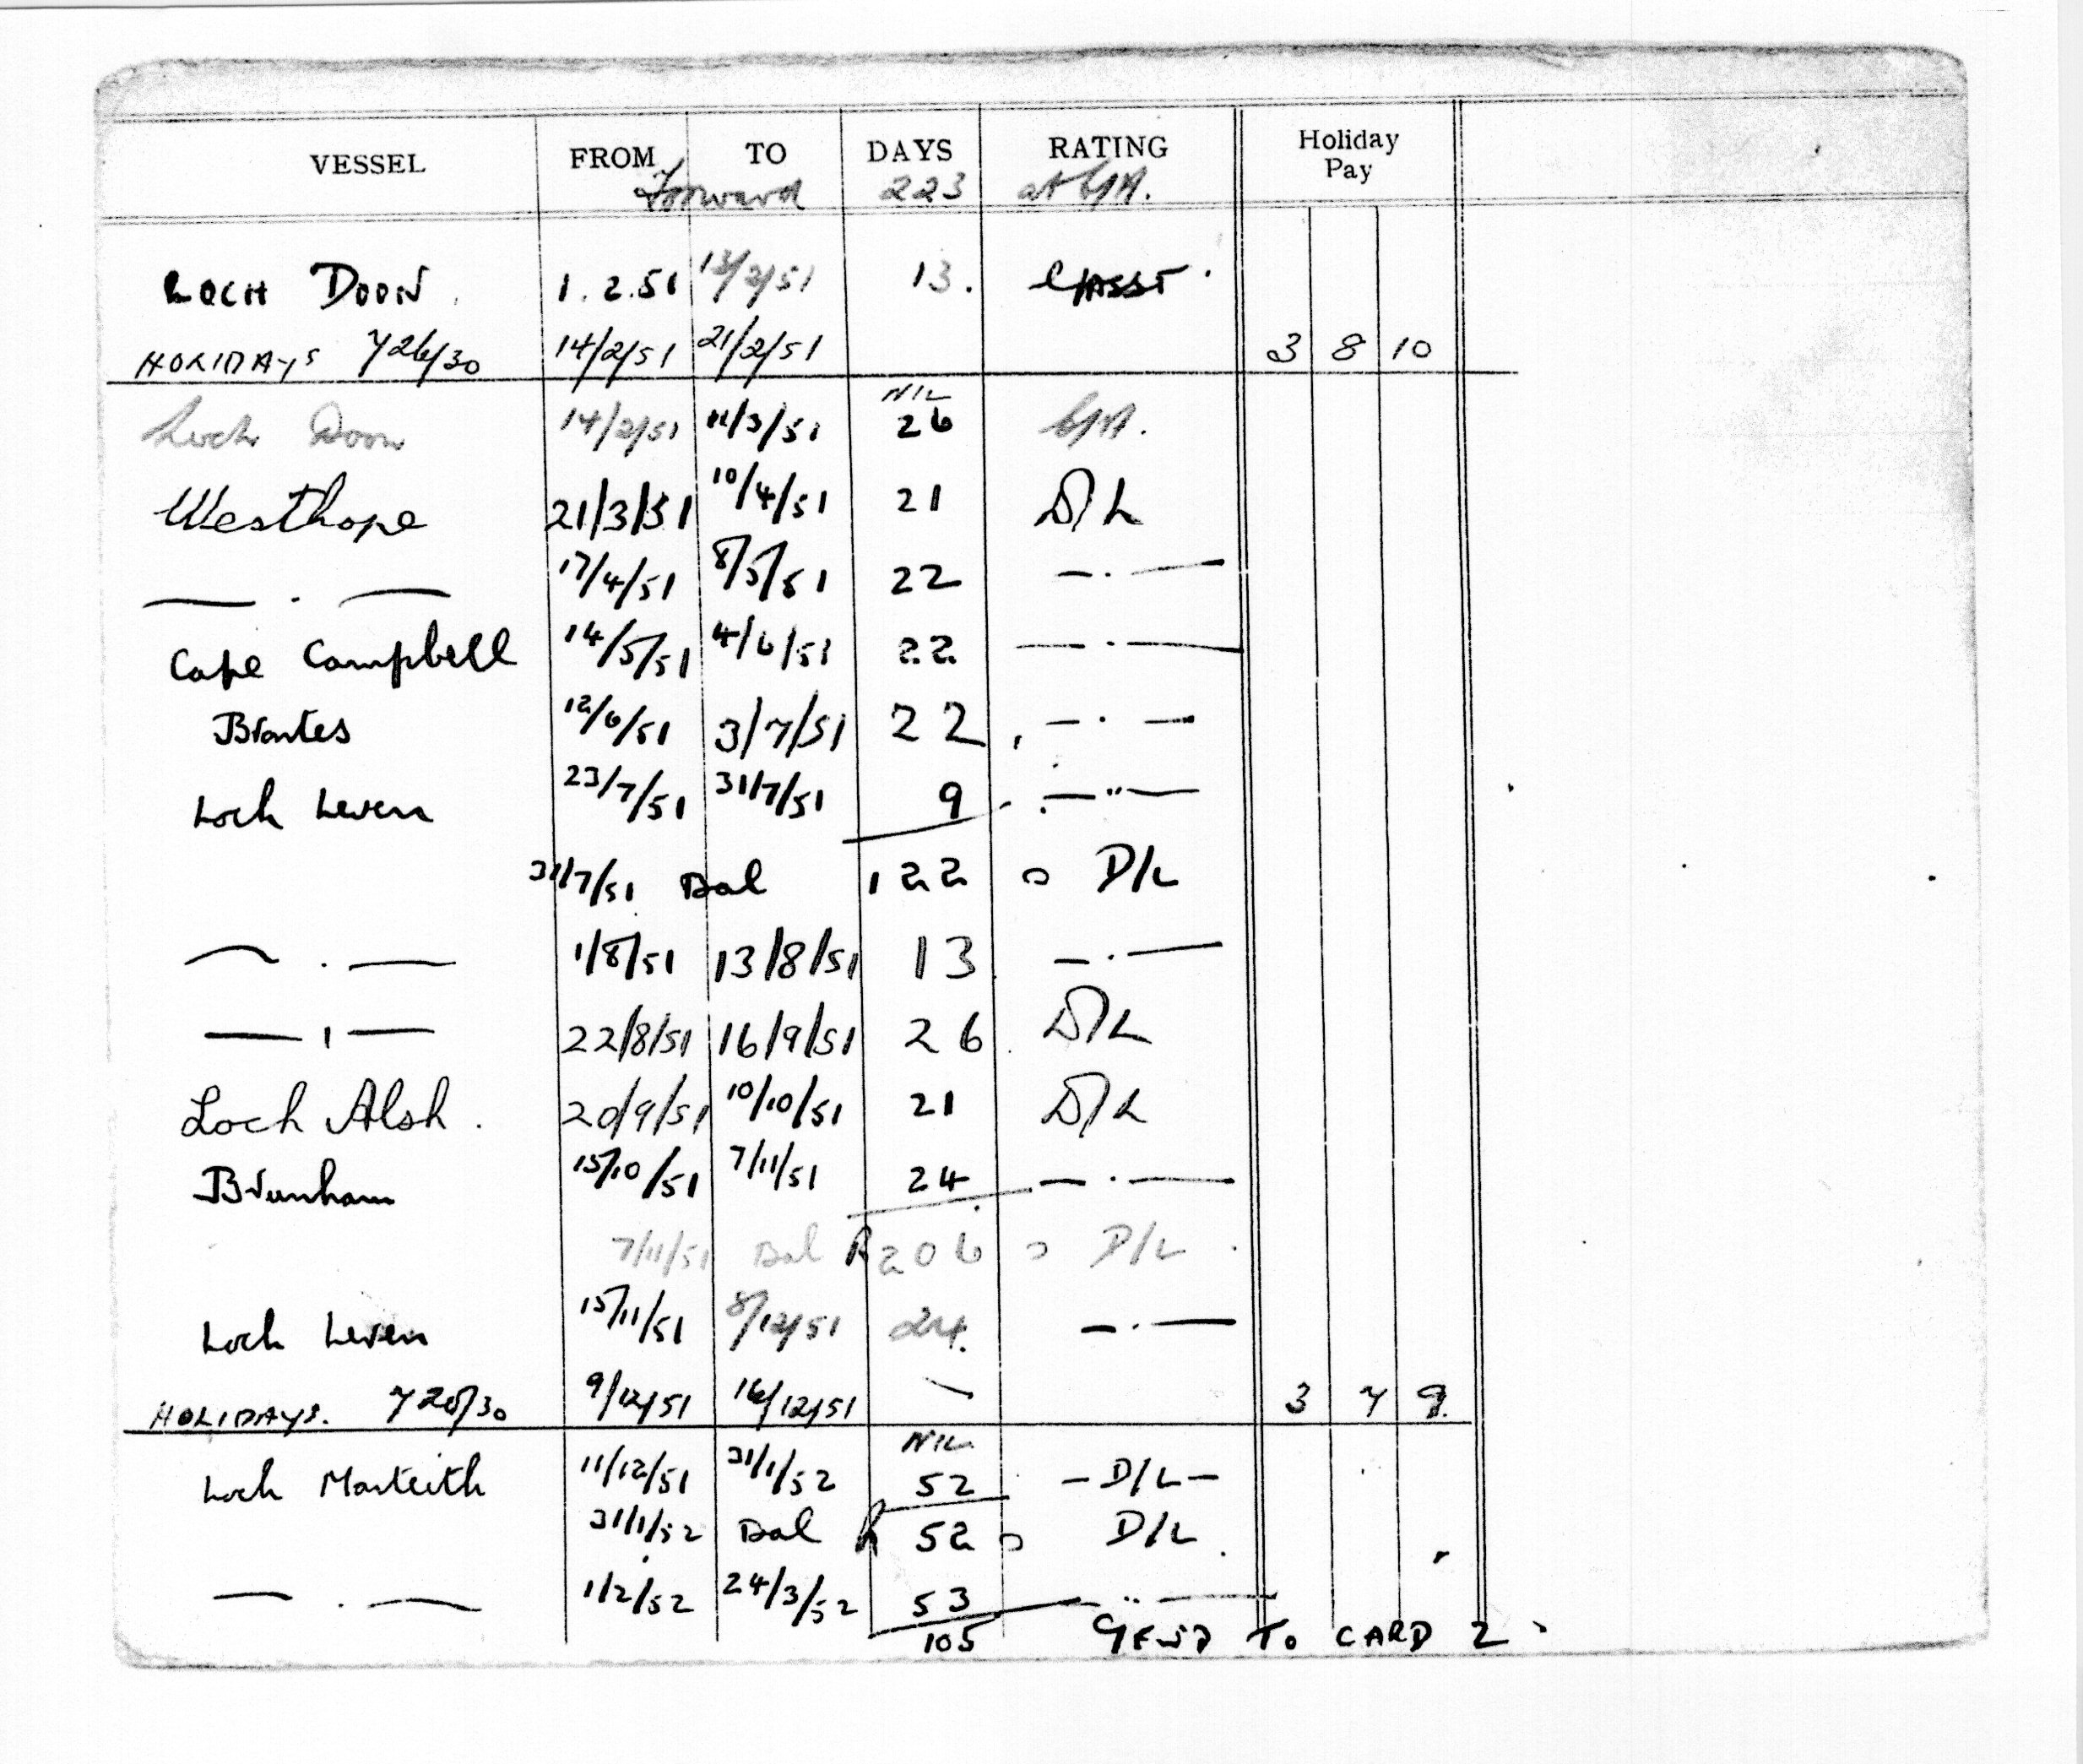 VESSEL FROM TO DAYS RATING Holiday Pay
Forward 223 at
LOCH DOON. 1.2.51 13/2/51 13.
HOLIDAYS 14/2/51 21/2/51 3 8 10
NIL
Loch Doon 14/2/51 11/3/51 26
Westhope 21/3/51 10/4/51 21 D/L
— . — 17/4/51 8/5/51 22 — . —
Cape Campbell 14/5/51 4/6/51 22 — . —
Brontes 12/6/51 3/7/51 22 — . —
Loch Leven 23/7/51 31/7/51 9 — " —
31/7/51 Bal 122 D/L
— . — 1/8/51 13/8/51 13 — . —
— " — 22/8/51 16/9/51 26 D/L
Loch Alsh. 20/9/51 10/10/51 21 D/L
Brunham 15/10/51 7/11/51 24 — . —
7/11/51 Bal 206 D/L
Loch Leven 15/11/51 8/12/51 24. — . —
HOLIDAYS. 9/12/51 16/12/51 — 3 7 9.
NIL
Loch Monteith 11/12/51 31/1/52 52 — D/L —
31/1/52 Bal 52 D/L
— . — 1/2/52 24/3/52 53 — " —
105 TO CARD 2